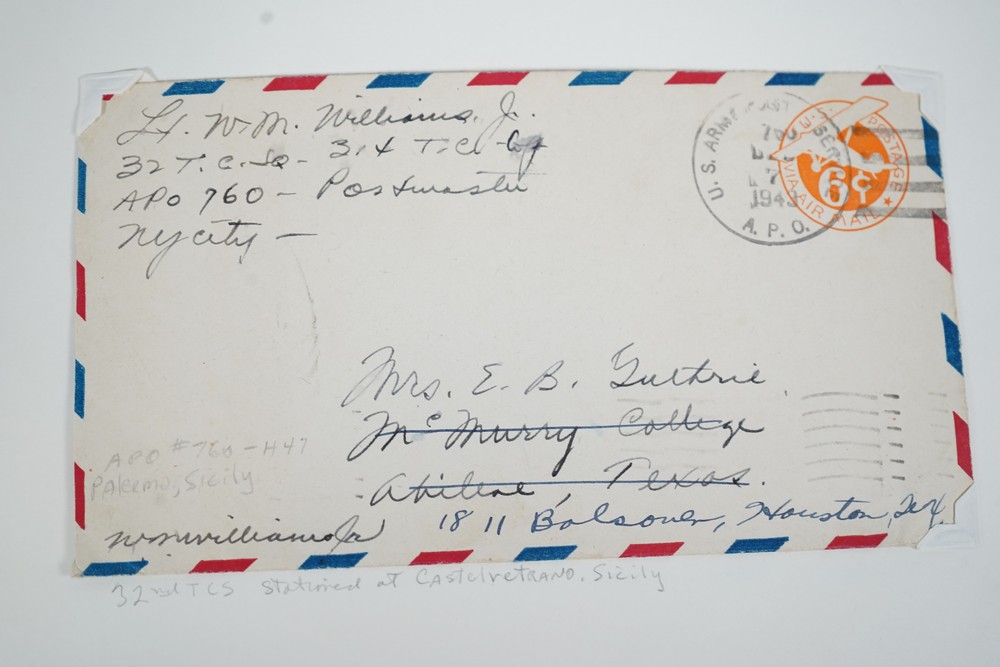 Lt. W. M. Williams, Jr.
32 T. C. Sq - 314 T. C. Gp
APO 760 - Postmaster
NY City -
U. S. ARMY POSTAL SERVICE
760
7
194
A. P. O.
U.S. POSTAGE
6¢
VIA AIR MAIL
Mrs. E. B. Guthrie
McMurry College
Abilene, Texas.
1811 Bolsover, Houston, Tex.
APO #760 - H47
Palermo, Sicily
Wm Williams Jr
32nd TCS Stationed at Castelvetrano, Sicily